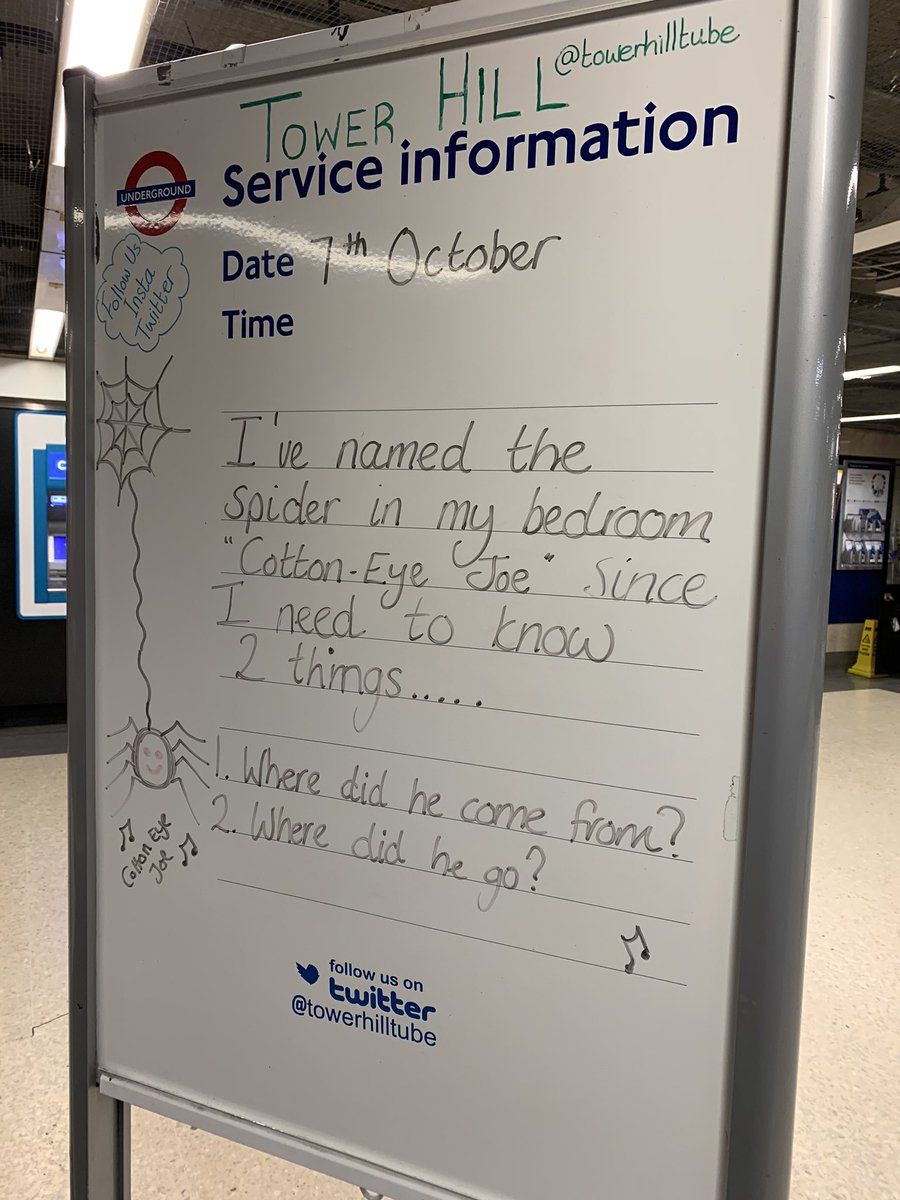 TOWER HILL @towerhilltube
Service information
UNDERGROUND
Date 7th October
Time
Follow Us
Insta
Twitter
I've named the
spider in my bedroom
"Cotton-Eye Joe" Since
I need to know
2 things.....
1. Where did he come from?
2. Where did he go?
Cotton Eye
Joe
follow us on
twitter
@towerhilltube